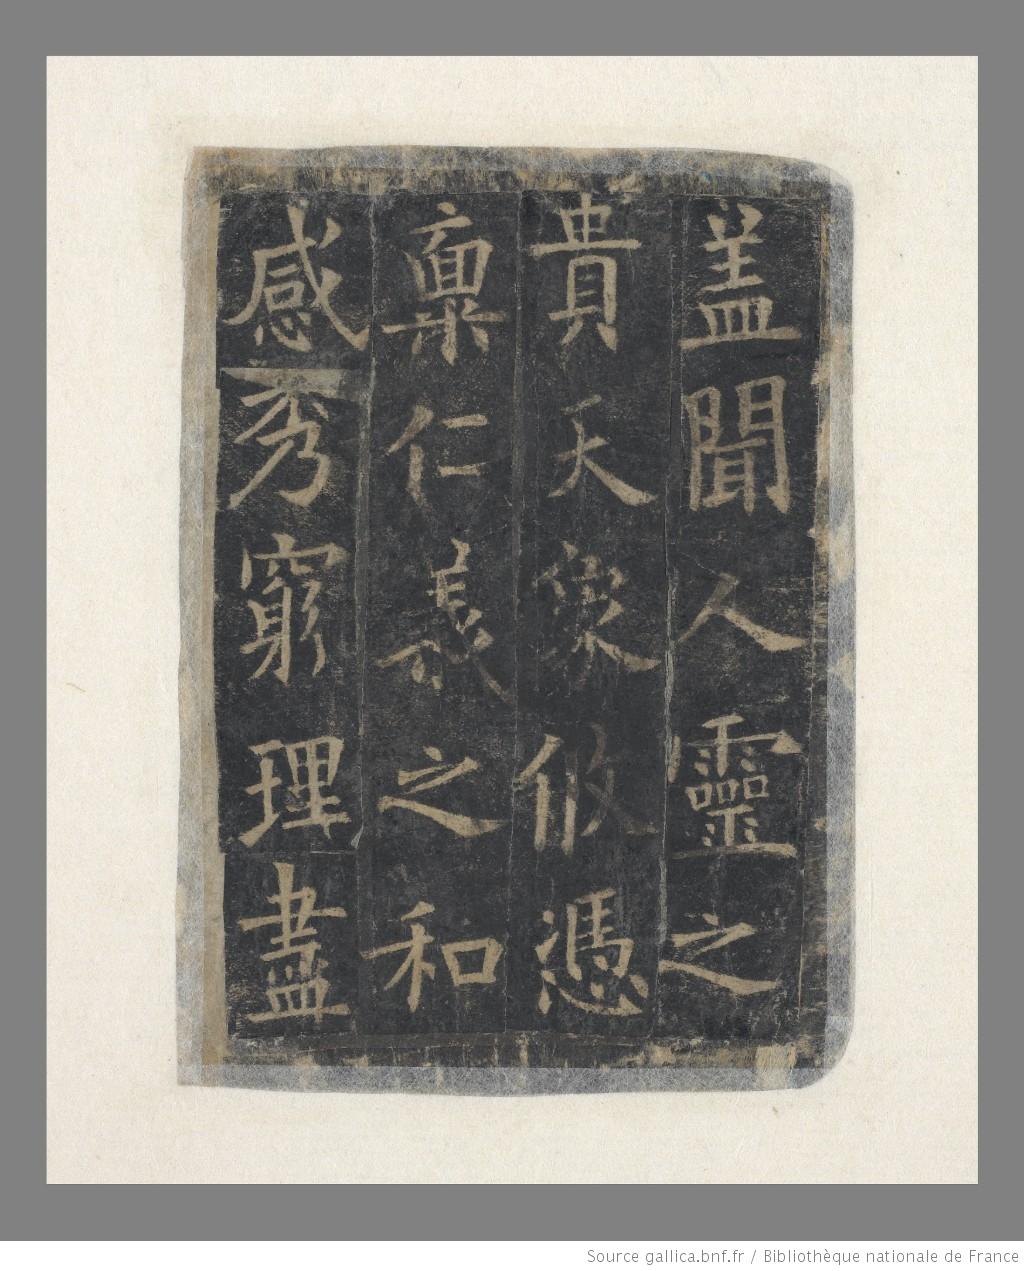 盖聞人靈之
貴天象攸憑
稟仁義之和
感秀窮理盡
Source gallica.bnf.fr / Bibliothèque nationale de France